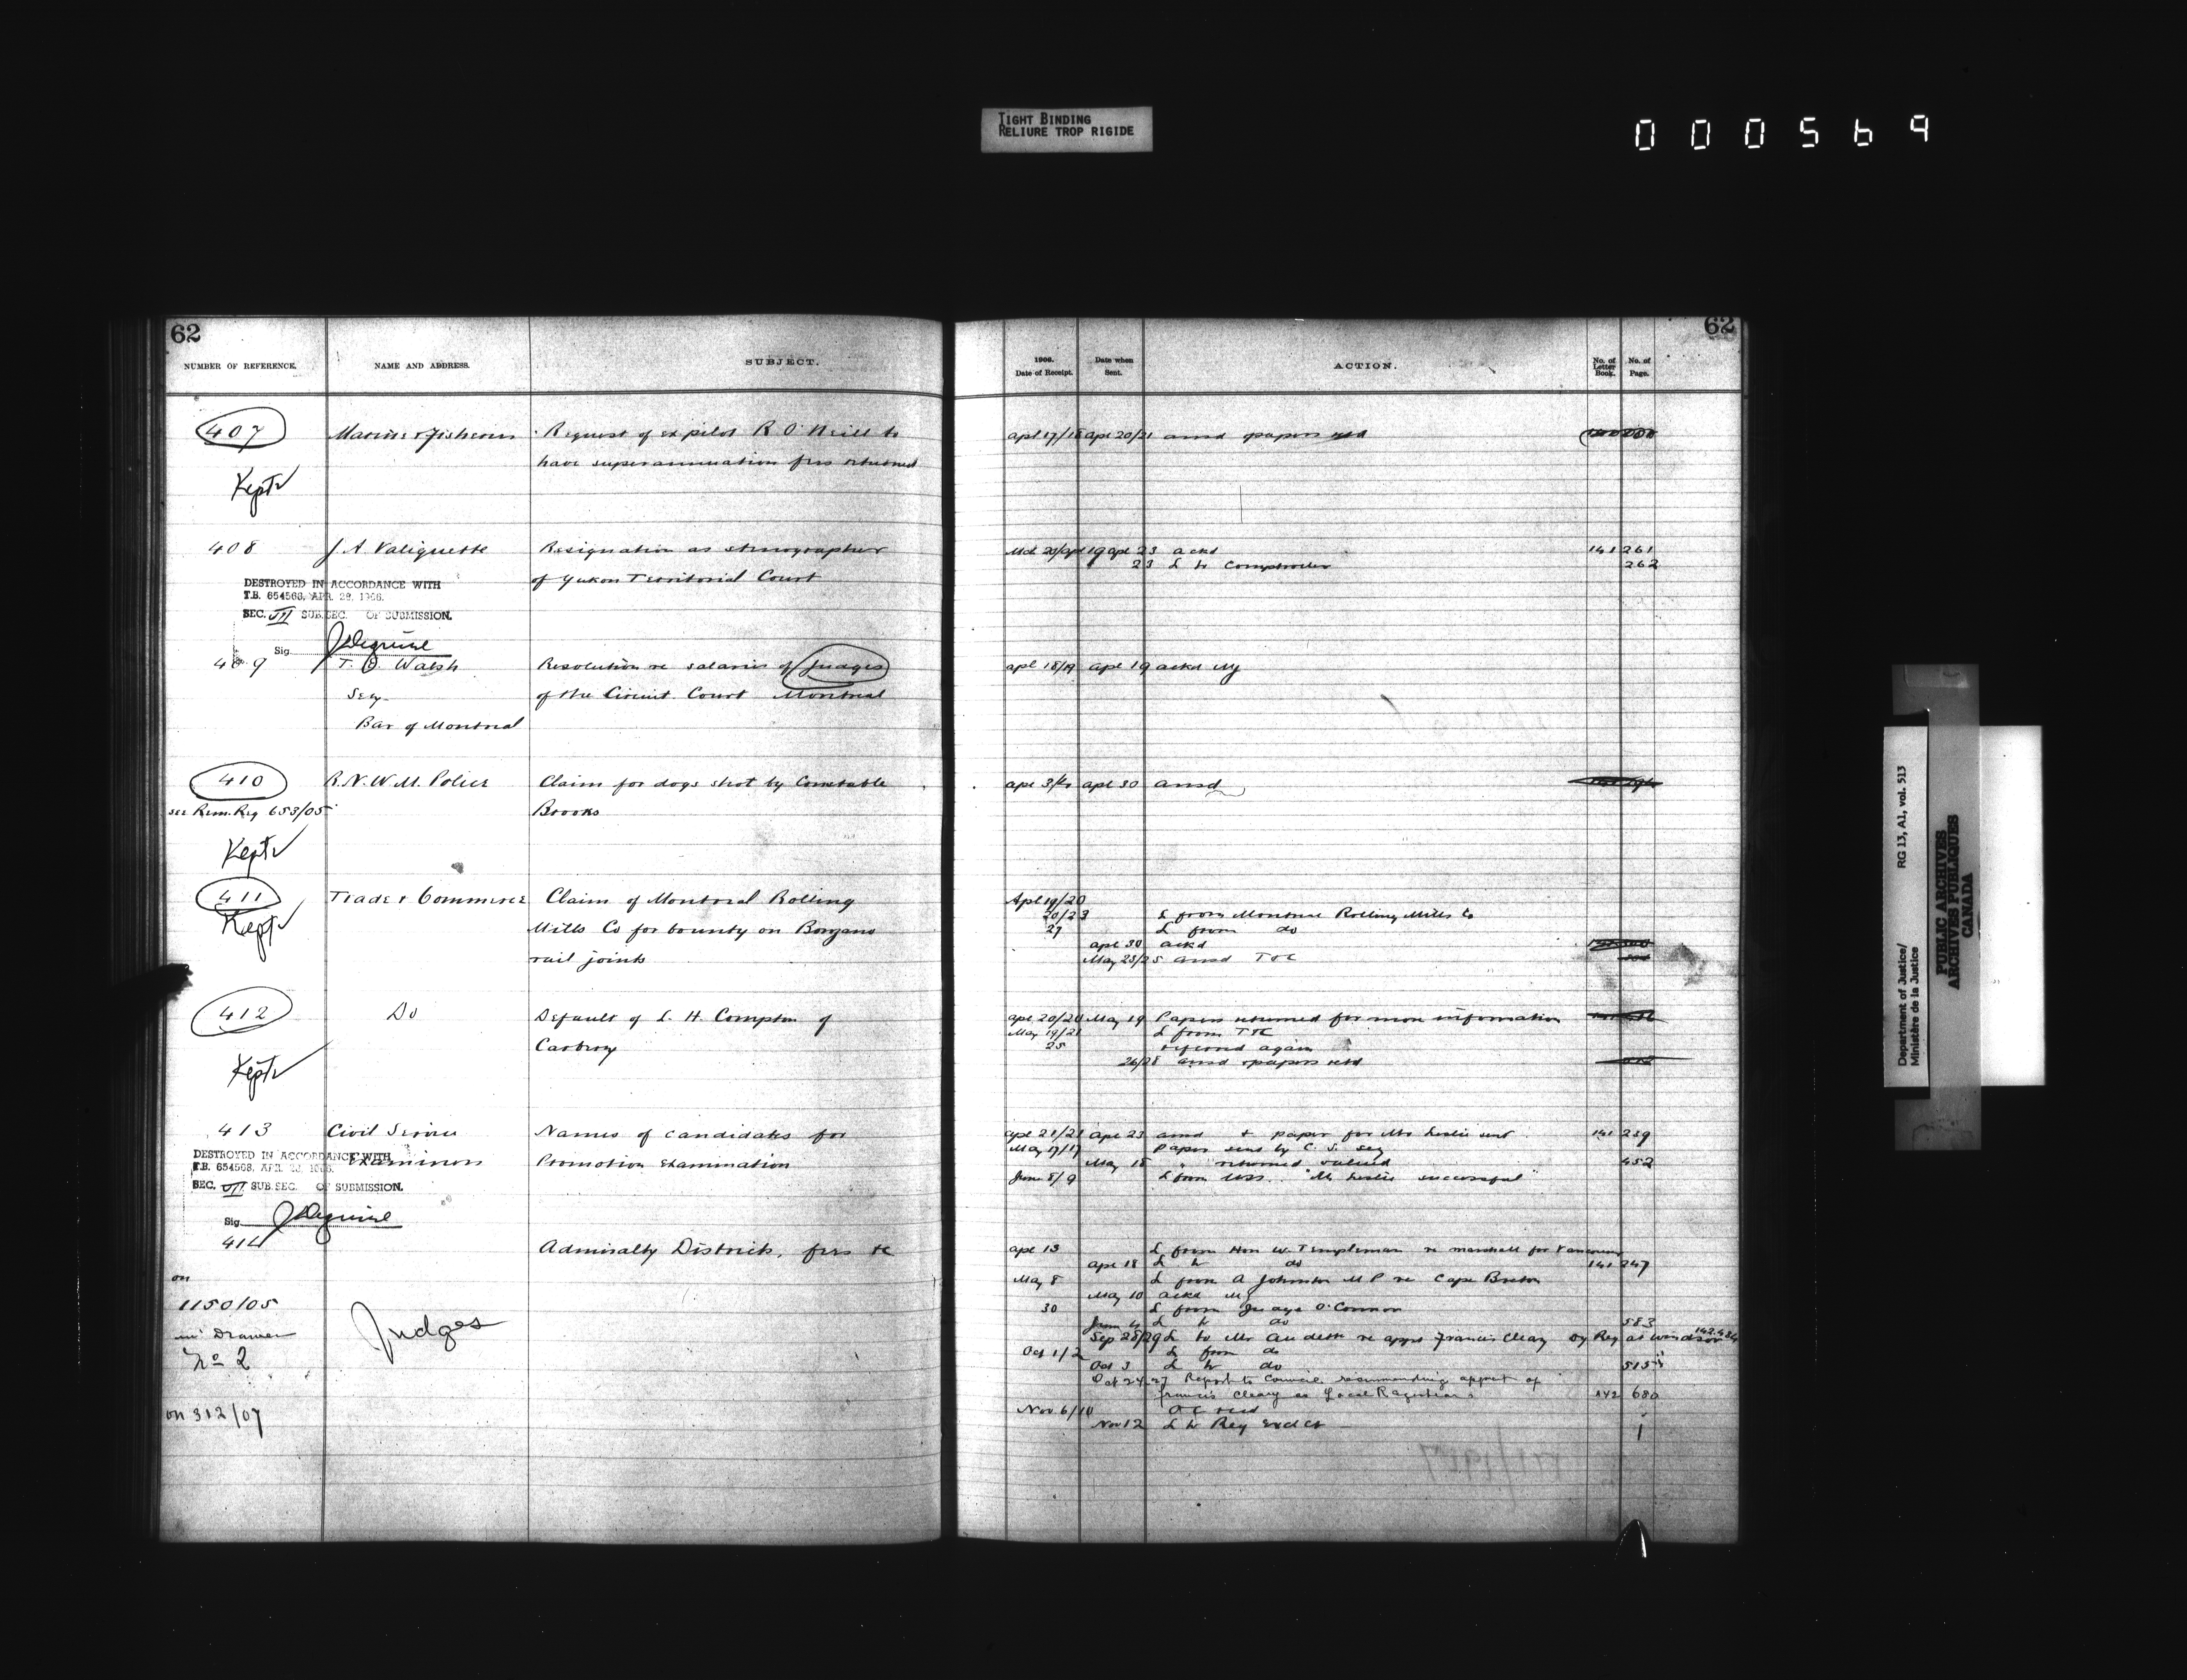 TIGHT BINDING
RELIURE TROP RIGIDE
000569
62
NUMBER OF REFERENCE.
NAME AND ADDRESS.
SUBJECT.
407
Marine & Fisheries
Request of ex pilot R. O'Neill to
have superannuation fees returned
Kept
408
J. A. Valiquette
Resignation as stenographer
of Yukon Territorial Court
DESTROYED IN ACCORDANCE WITH
T.B. 654568, APR. 29, 1966.
SEC. VII SUB.SEC. OF SUBMISSION.
Sig.
409
T. J. Walsh
Resolution re salaries of Judges
Secy
of the Circuit Court Montreal
Bar of Montreal
410
R.N.W.M. Police
Claim for dogs shot by Constable
see Rem. Reg 653/05
Brooks
Kept
411
Trade & Commerce
Claim of Montreal Rolling
Kept
Mills Co for bounty on Bonzano
rail joints
412
Do
Default of L. H. Compton of
Kept
413
Civil Service
Names of candidates for
Examiners
Promotion Examination
DESTROYED IN ACCORDANCE WITH
T.B. 654568, APR. 29, 1966.
SEC. VII SUB.SEC. OF SUBMISSION.
Sig.
414
Admiralty Districts, fees &c
on
1150/05
in Drawer
No 2
Judges
on 312/07
62
1906.
Date of Receipt.
Date when
Sent.
ACTION.
No. of
Letter
Book.
No. of
Page.
apl 17/18 apl 20/21 ansd & papers retd
Mch 20/apl 19 apl 23 ackd 141 261
23 L to Comptroller 262
apl 18/19 apl 19 ackd My
apl 30 ansd
Apl 19/20
20/23 L from Montreal Rolling Mills Co
27 L from do
apl 30 ackd
May 23/25 ansd T & C
apl 20/20 May 19 Papers returned for more information
May 19/21 L from T & C
25 referred again
26/28 ansd & papers retd
apl 21/21 apl 23 ansd & paper for Mr Leslie sent 141 259
May 17/17 Papers sent by C. S. Secy
May 18 " returned 452
June 8/9 L from "Mr Leslie successful"
apl 13 L from Hon W. Templeman re marshall for Vancouver
apl 18 L to do 141 247
May 8 L from A Johnston M P re Cape Breton
May 10 ackd My
30 L from Judge O'Connor
June 4 L to do 583
Sep 28/29 L to Mr Audette re appt Francis Cleary Dy Reg at Windsor 142 484
Oct 1/2 L from do
Oct 3 L to do 515
Oct 24 27 Report to Council recommending appmt of
Francis Cleary as Local Registrar 142 680
Nov 6/10 O C recd
Nov 12 L to Reg Exch Ct 1
Department of Justice/
Ministère de la Justice
RG 13, A1, vol. 513
PUBLIC ARCHIVES
ARCHIVES PUBLIQUES
CANADA